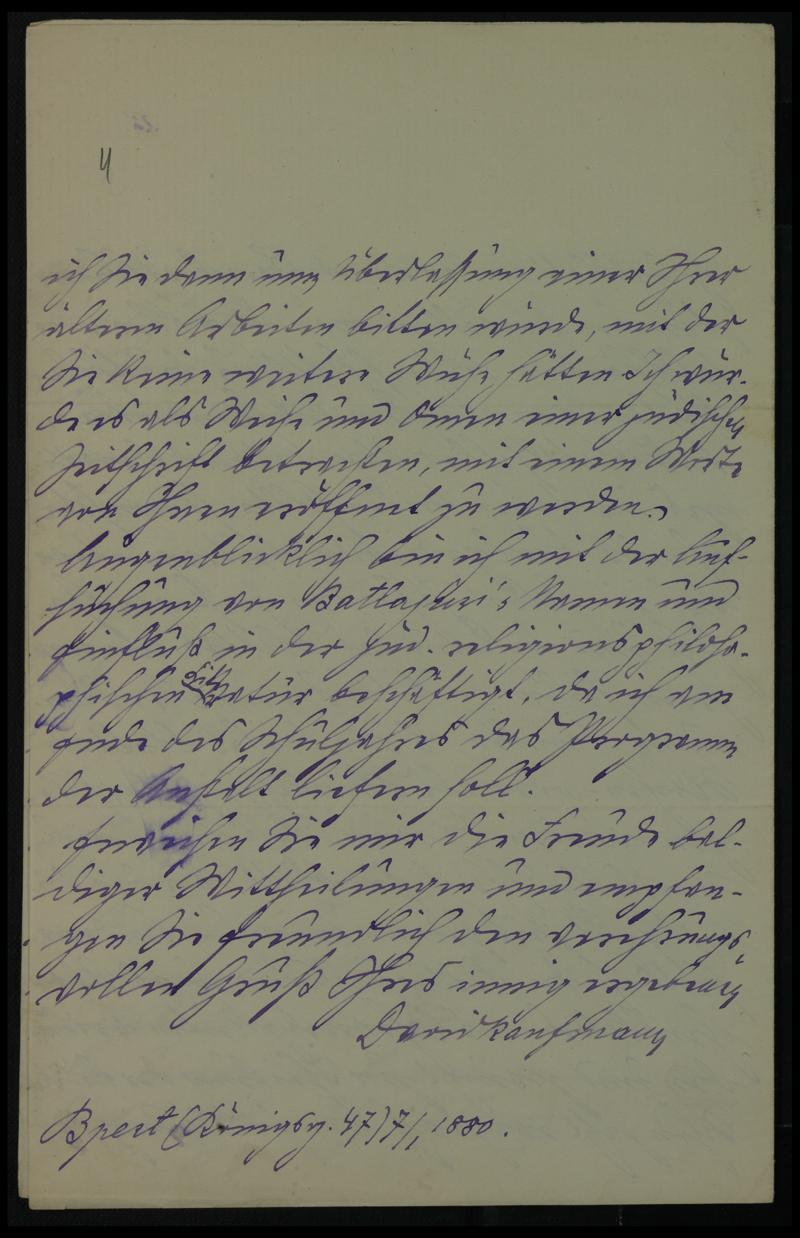 4
ich Sie dann um Überlassung einer Ihrer
älteren Arbeiten bitten würde, mit der
Sie keine weitere Mühe hätten. Ich wür-
de es als Weihe und Omen einer jüdischen
Zeitschrift betrachten, mit einem Worte
von Ihnen eröffnet zu werden.
Augenblicklich bin ich mit der Auf-
suchung von Batlajusi's Namen und
Einfluß in der jüd. religionsphiloso-
phischen Litteratur beschäftigt, da ich am
Ende des Schuljahres das Programm
der Anstalt liefern soll.
Erweisen Sie mir die Freude bal-
diger Mittheilungen und empfan-
gen Sie freundlich den verehrungs-
vollen Gruß Ihres innig ergebenen
David Kaufmann
Bpest (Königsg. 47) 7/1 1880.